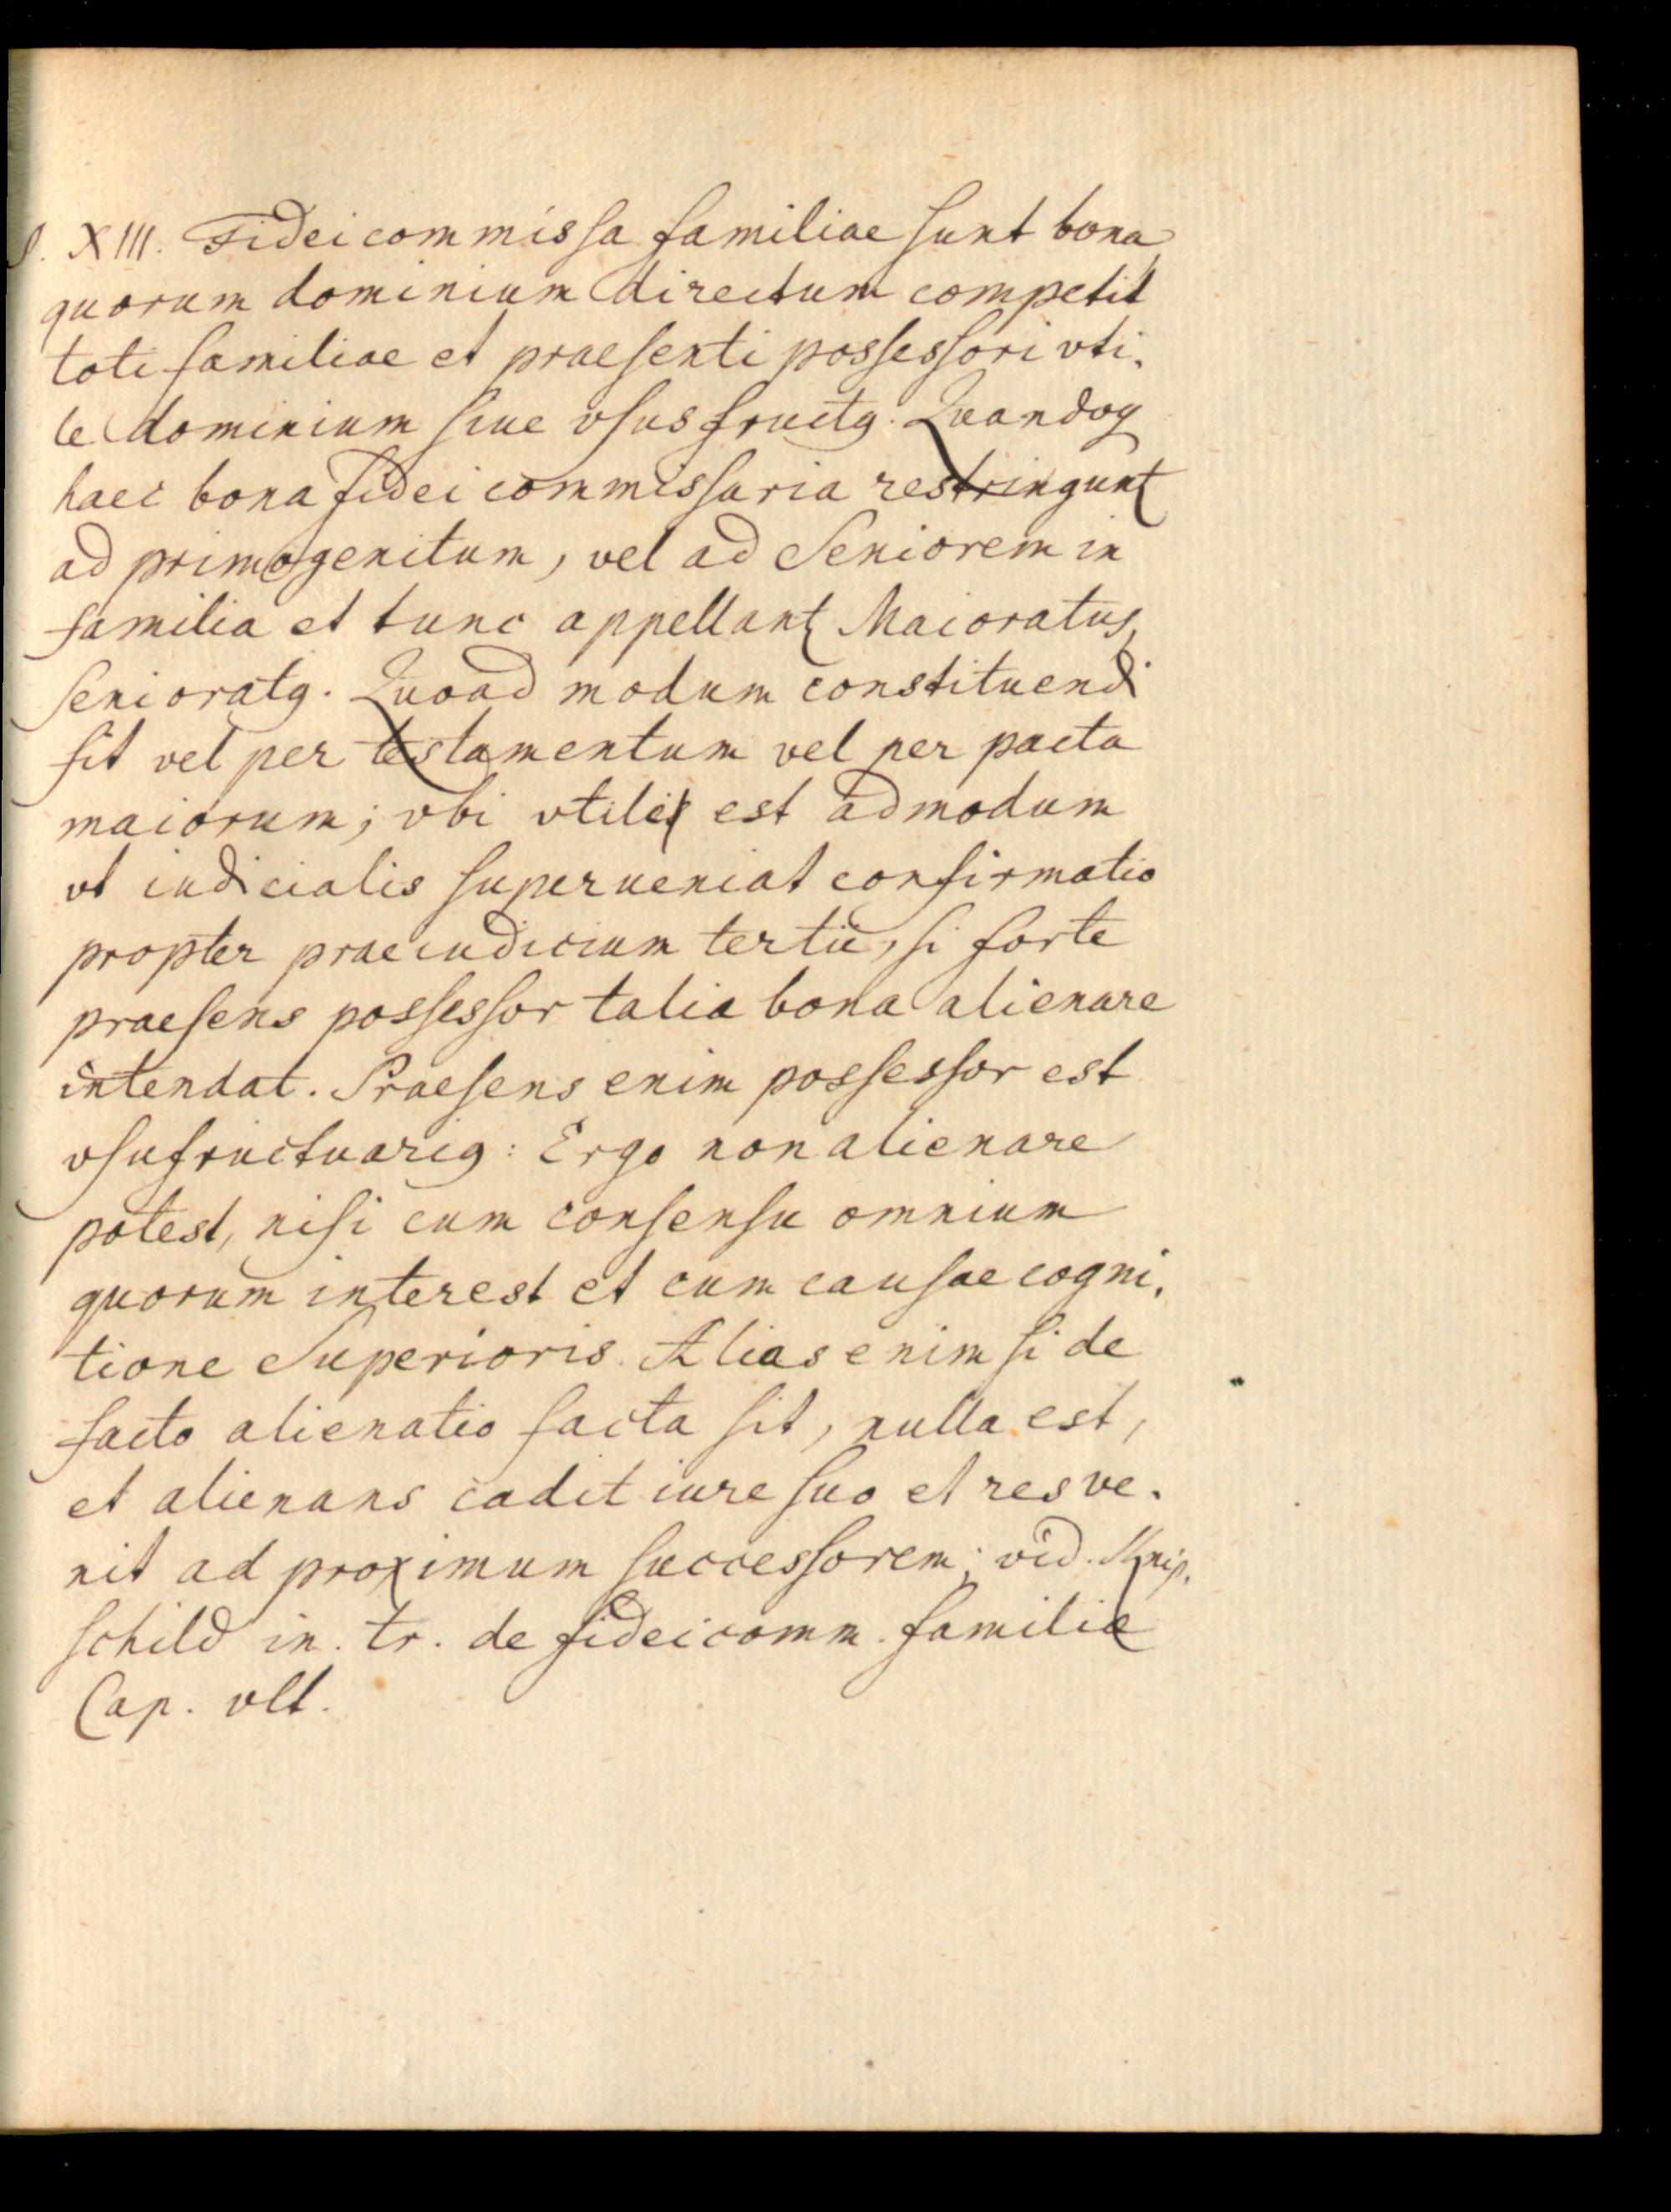 §. XIII. Fideicommissa familiae sunt bona
quorum dominium directum competit
toti familiae et praesenti possessori vti-
le dominium siue vsusfructꝯ. Quandoqꝫ
haec bona fidei commissaria restringunt
ad primogenitum, vel ad Seniorem in
familia et tunc appellant Maioratus,
senioratꝯ. Quoad modum constituendi
fit vel per testamentum vel per pacta
maiorum; vbi vtile est admodum
vt iudicialis superueniat confirmatio
propter praeiudicium tertii, si forte
praesens possessor talia bona alienare
intendat. Praesens enim possessor est
vsufructuariꝯ: Ergo non alienare
potest, nisi cum consensu omnium
quorum interest et cum causae cogni-
tione Superioris. Alias enim si de
facto alienatio facta sit, nulla est,
et alienans cadit iure suo et res ve-
nit ad proximum successorem; vid. Knip-
schild in. tr. de fideicomm. familiae
Cap. vlt.